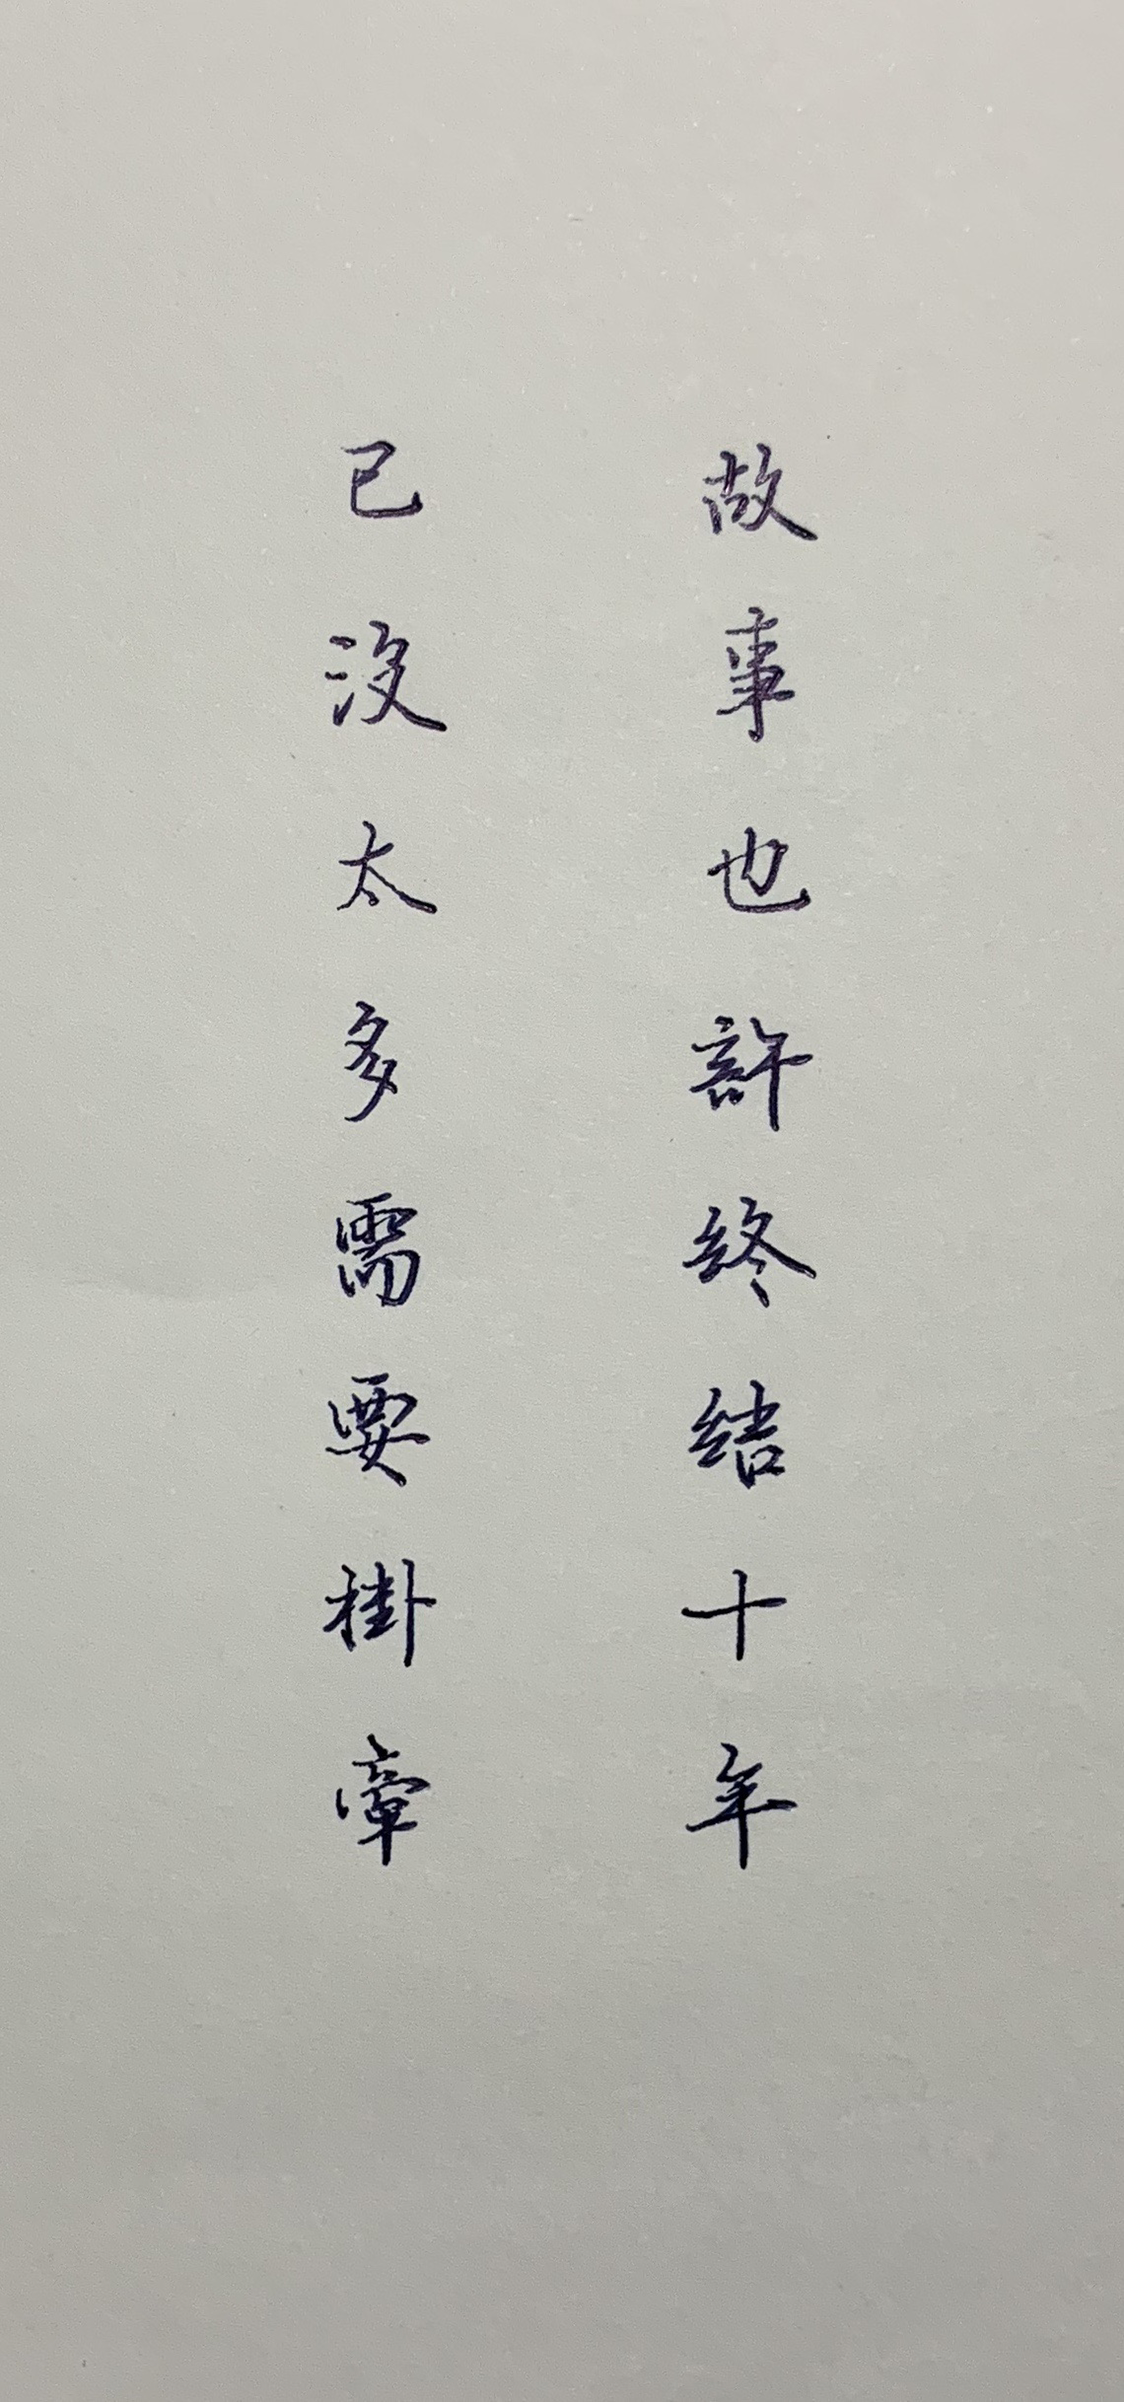 故事也許終結十年
已沒太多需要掛牽